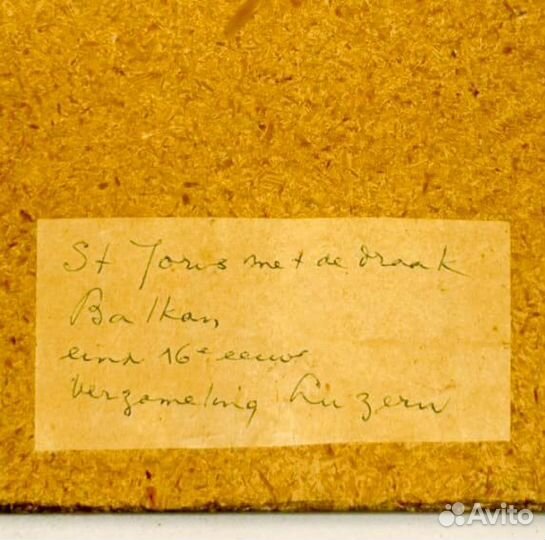 St Joris met de draak
Balkan,
eind 16e eeuw
verzameling Luzern
Avito